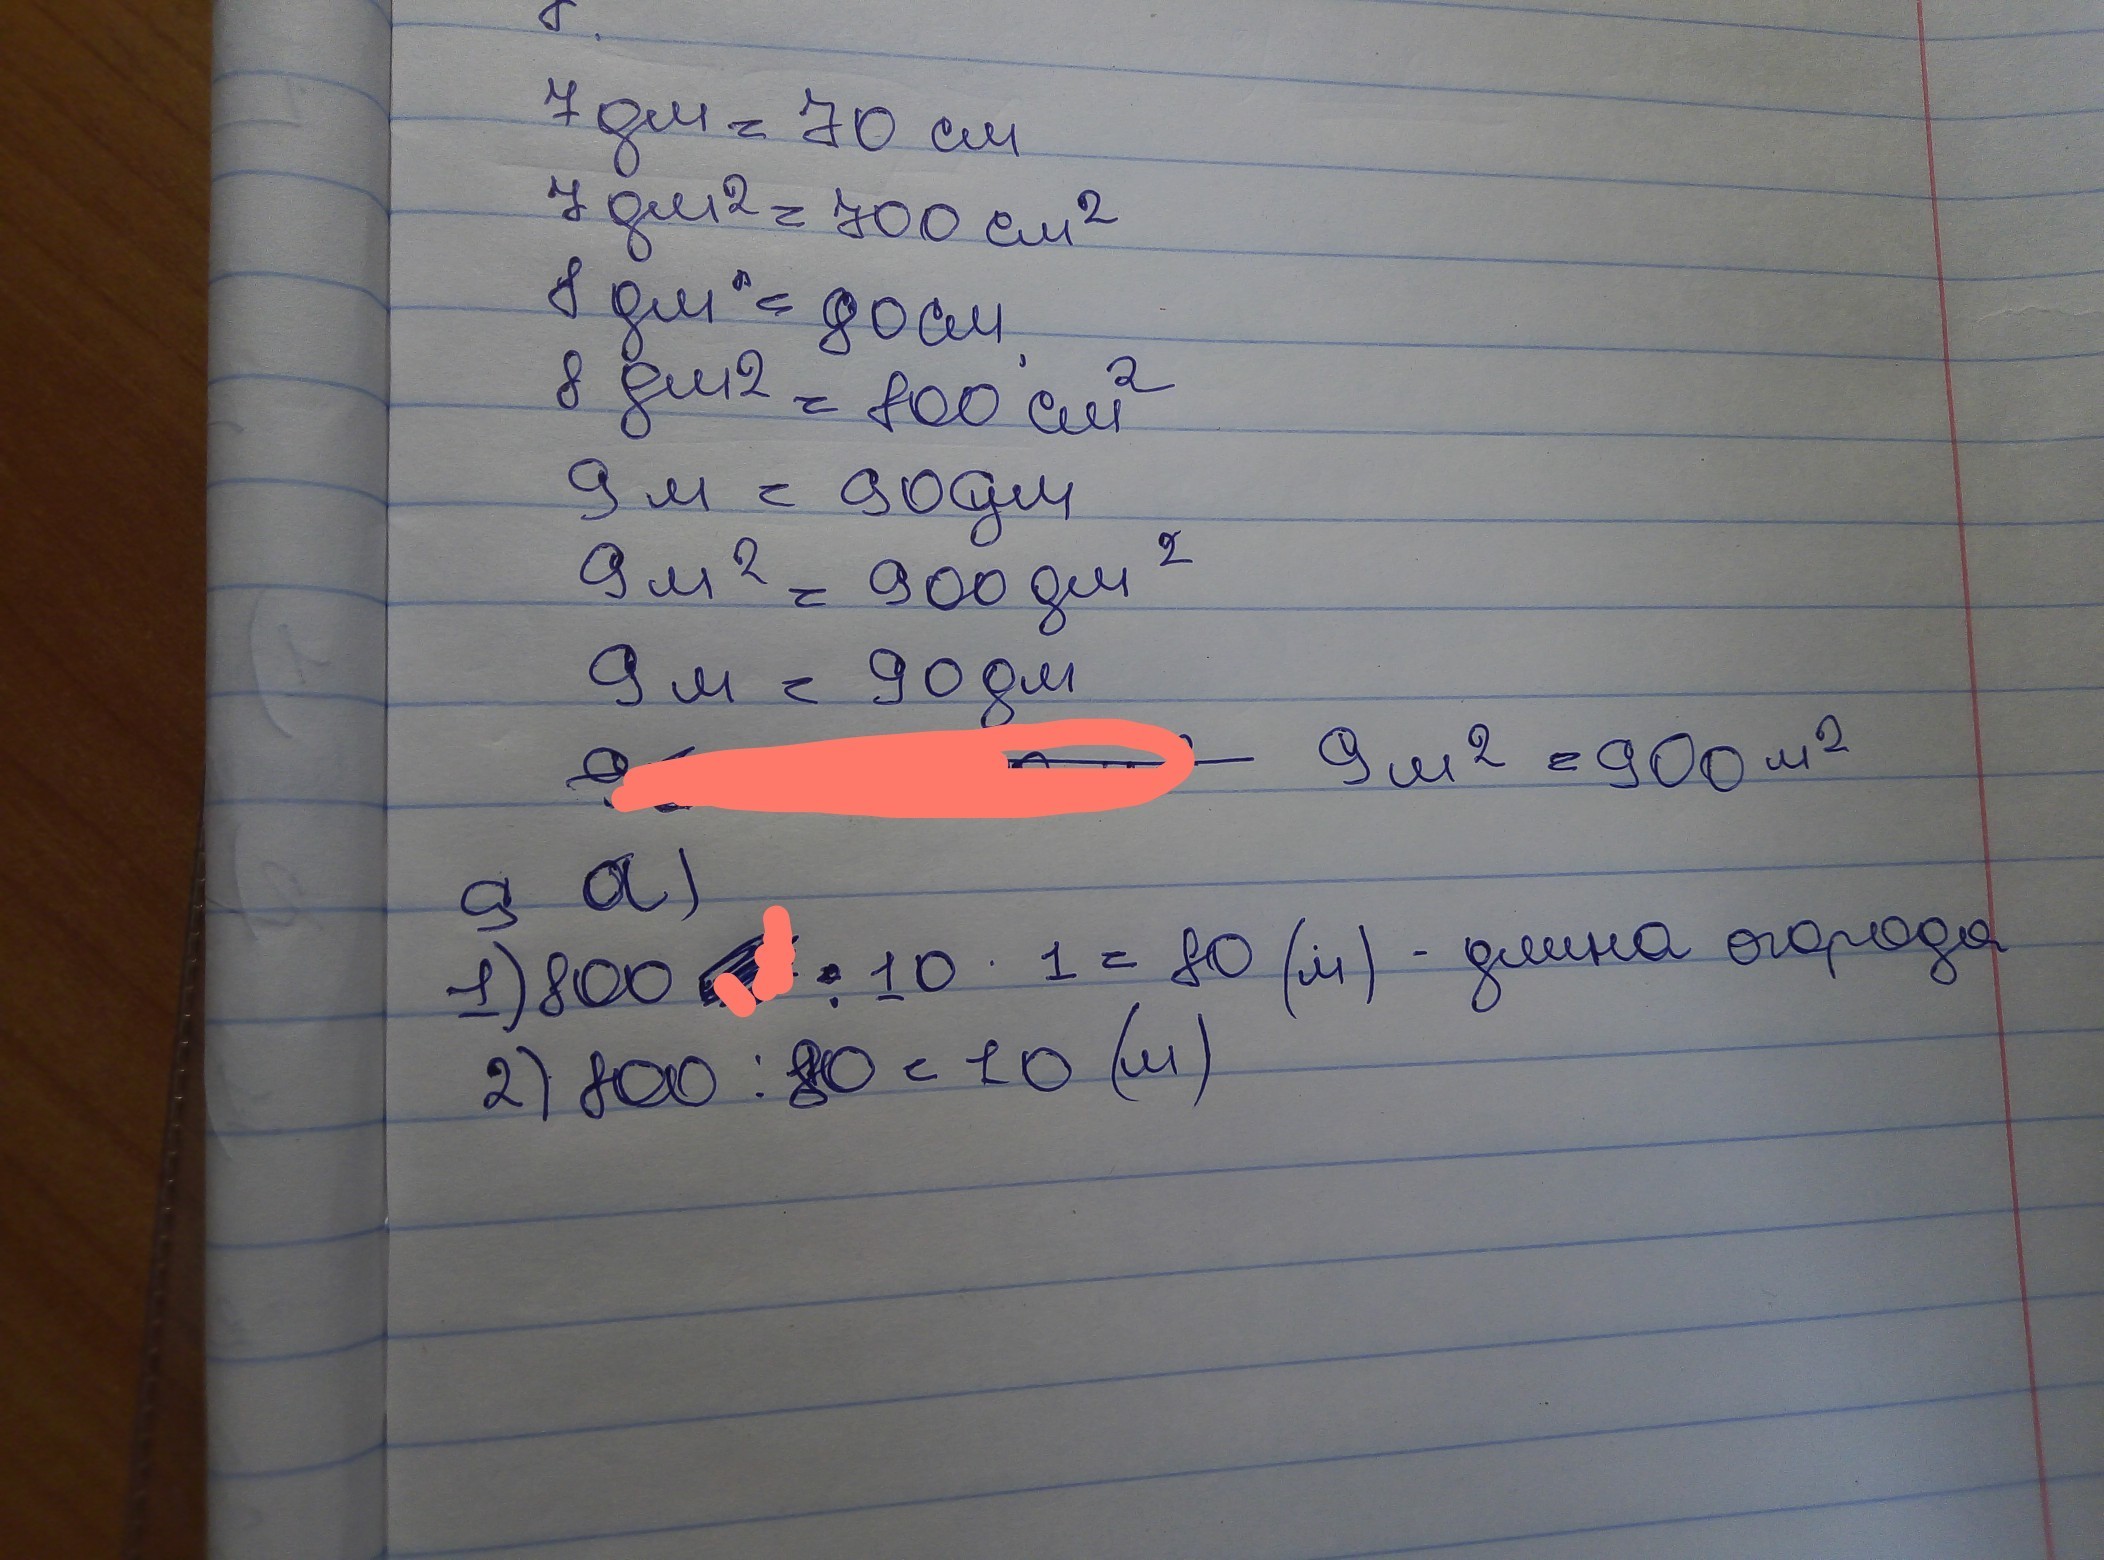 8.
7 дм = 70 см
7 дм² = 700 см²
8 дм = 80 см
8 дм² = 800 см²
9 м = 90 дм
9 м² = 900 дм²
9 м = 90 дм
9 м² = 900 м²
9 а)
1) 800 : 10 · 1 = 80 (м) - длина огорода
2) 800 : 80 = 10 (м)